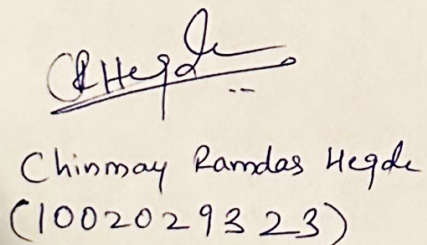 CRHegde
Chinmay Ramdas Hegde
(1002029323)